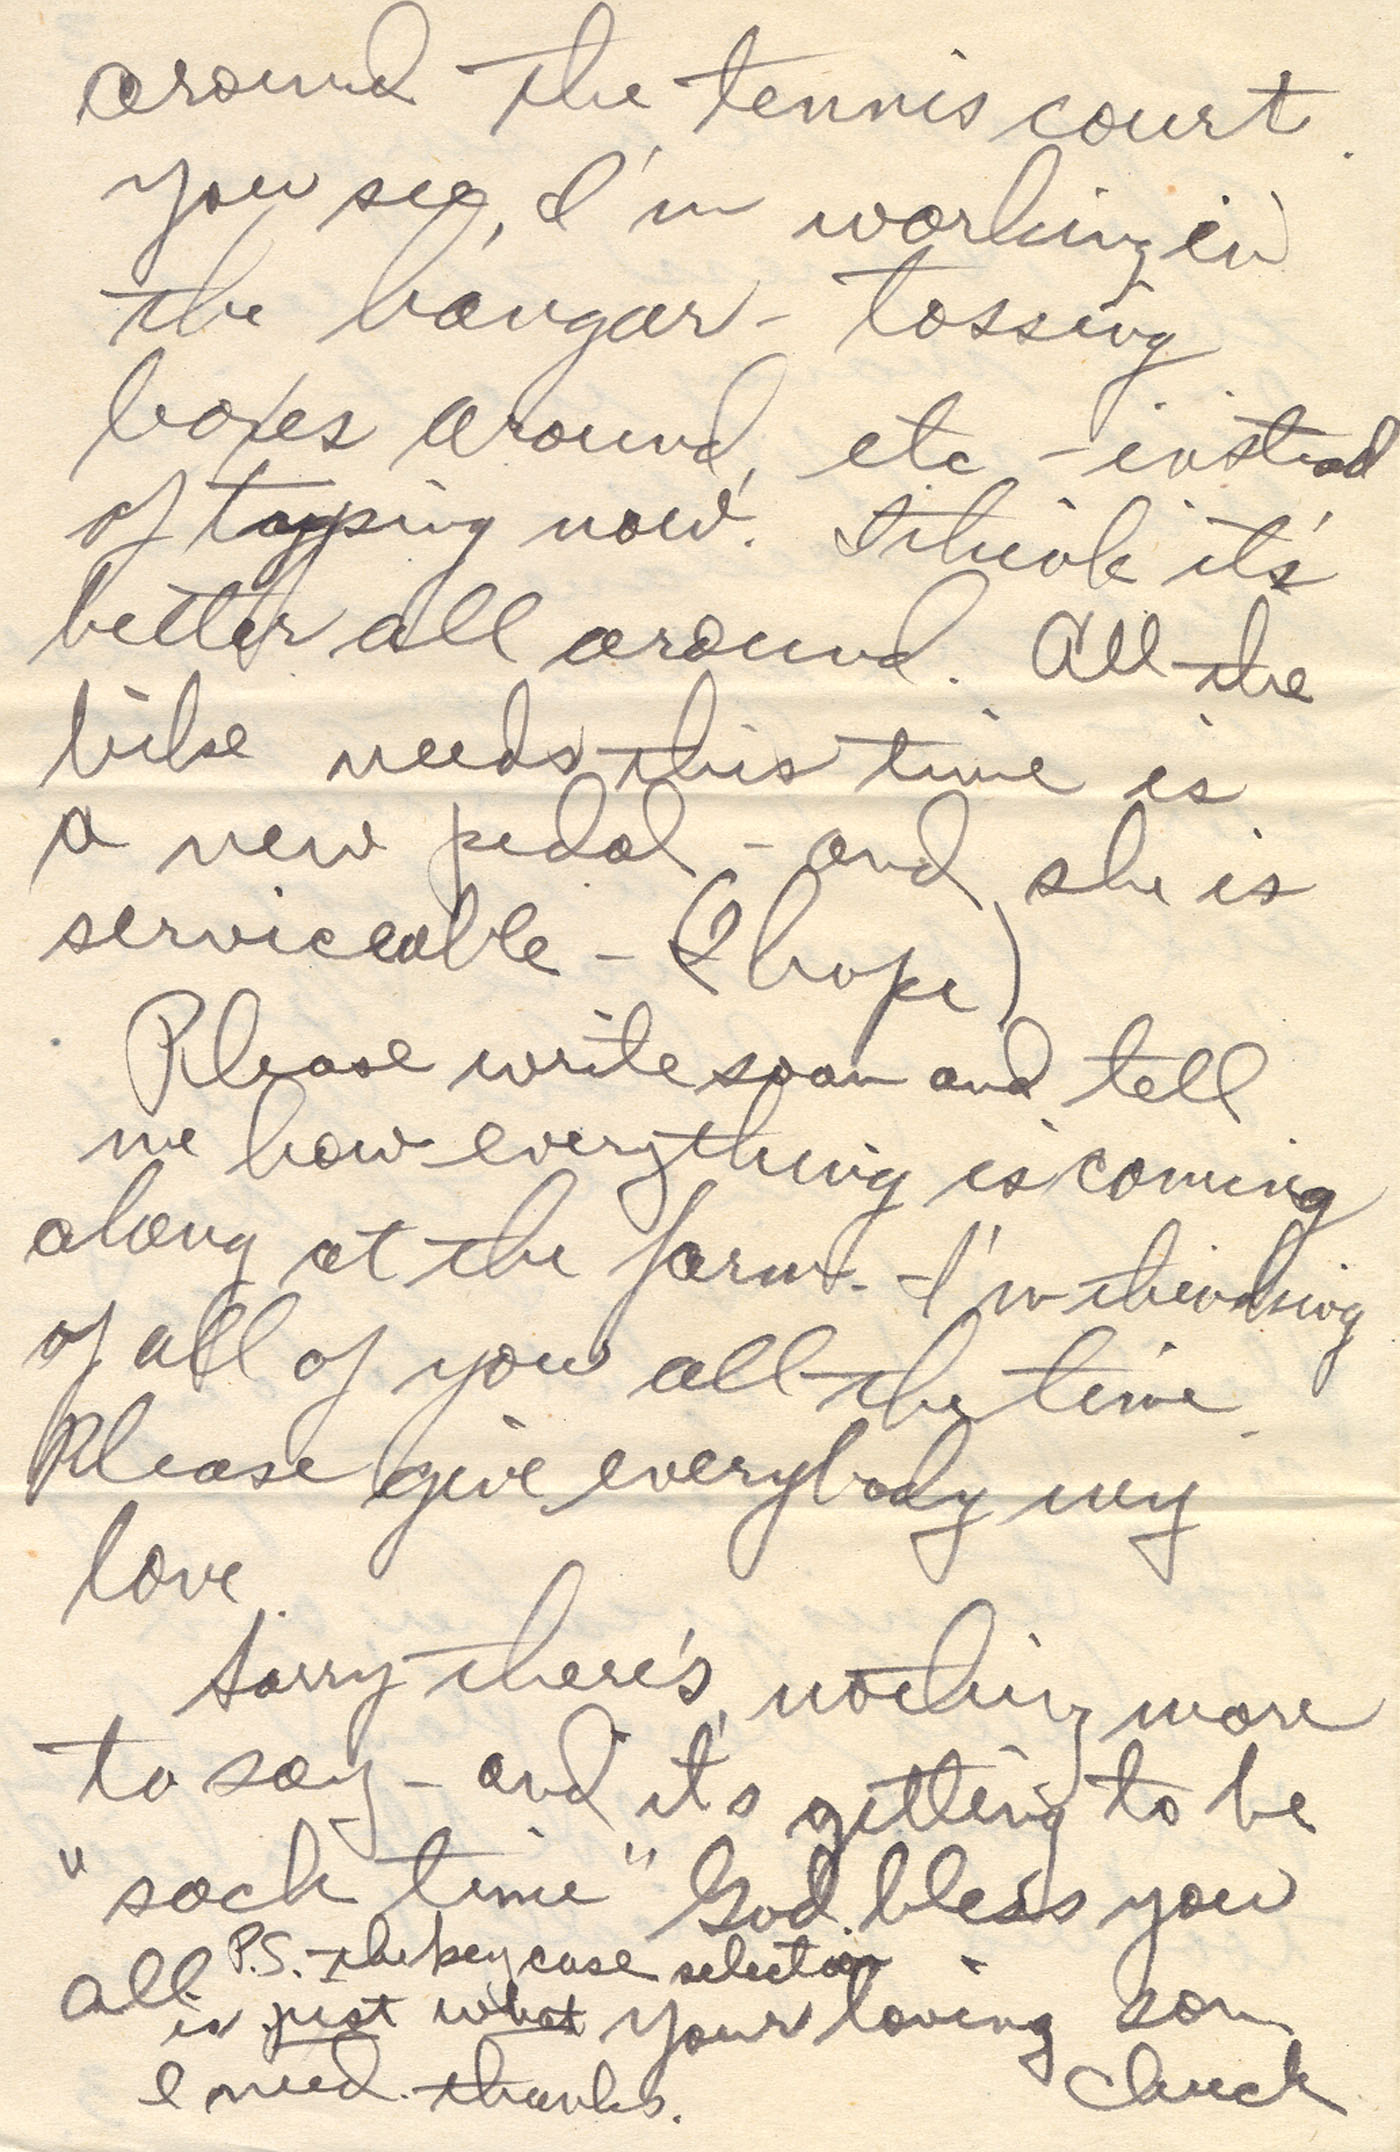 around the tennis court.
You see, I'm working in
the hangar - tossing
boxes around, etc - instead
of typing now. I think it's
better all around. All the
bike needs this time is
a new pedal - and she is
serviceable - (I hope)
Please write soon and tell
me how everything is coming
along at the farm. I'm thinking
of all of you all the time.
Please give everybody my
love.
Sorry there's nothing more
to say - and it's getting to be
"sack time" God bless you
all -
Your loving son
Chuck
P.S. - the key case selection
is just what
I need. thanks.